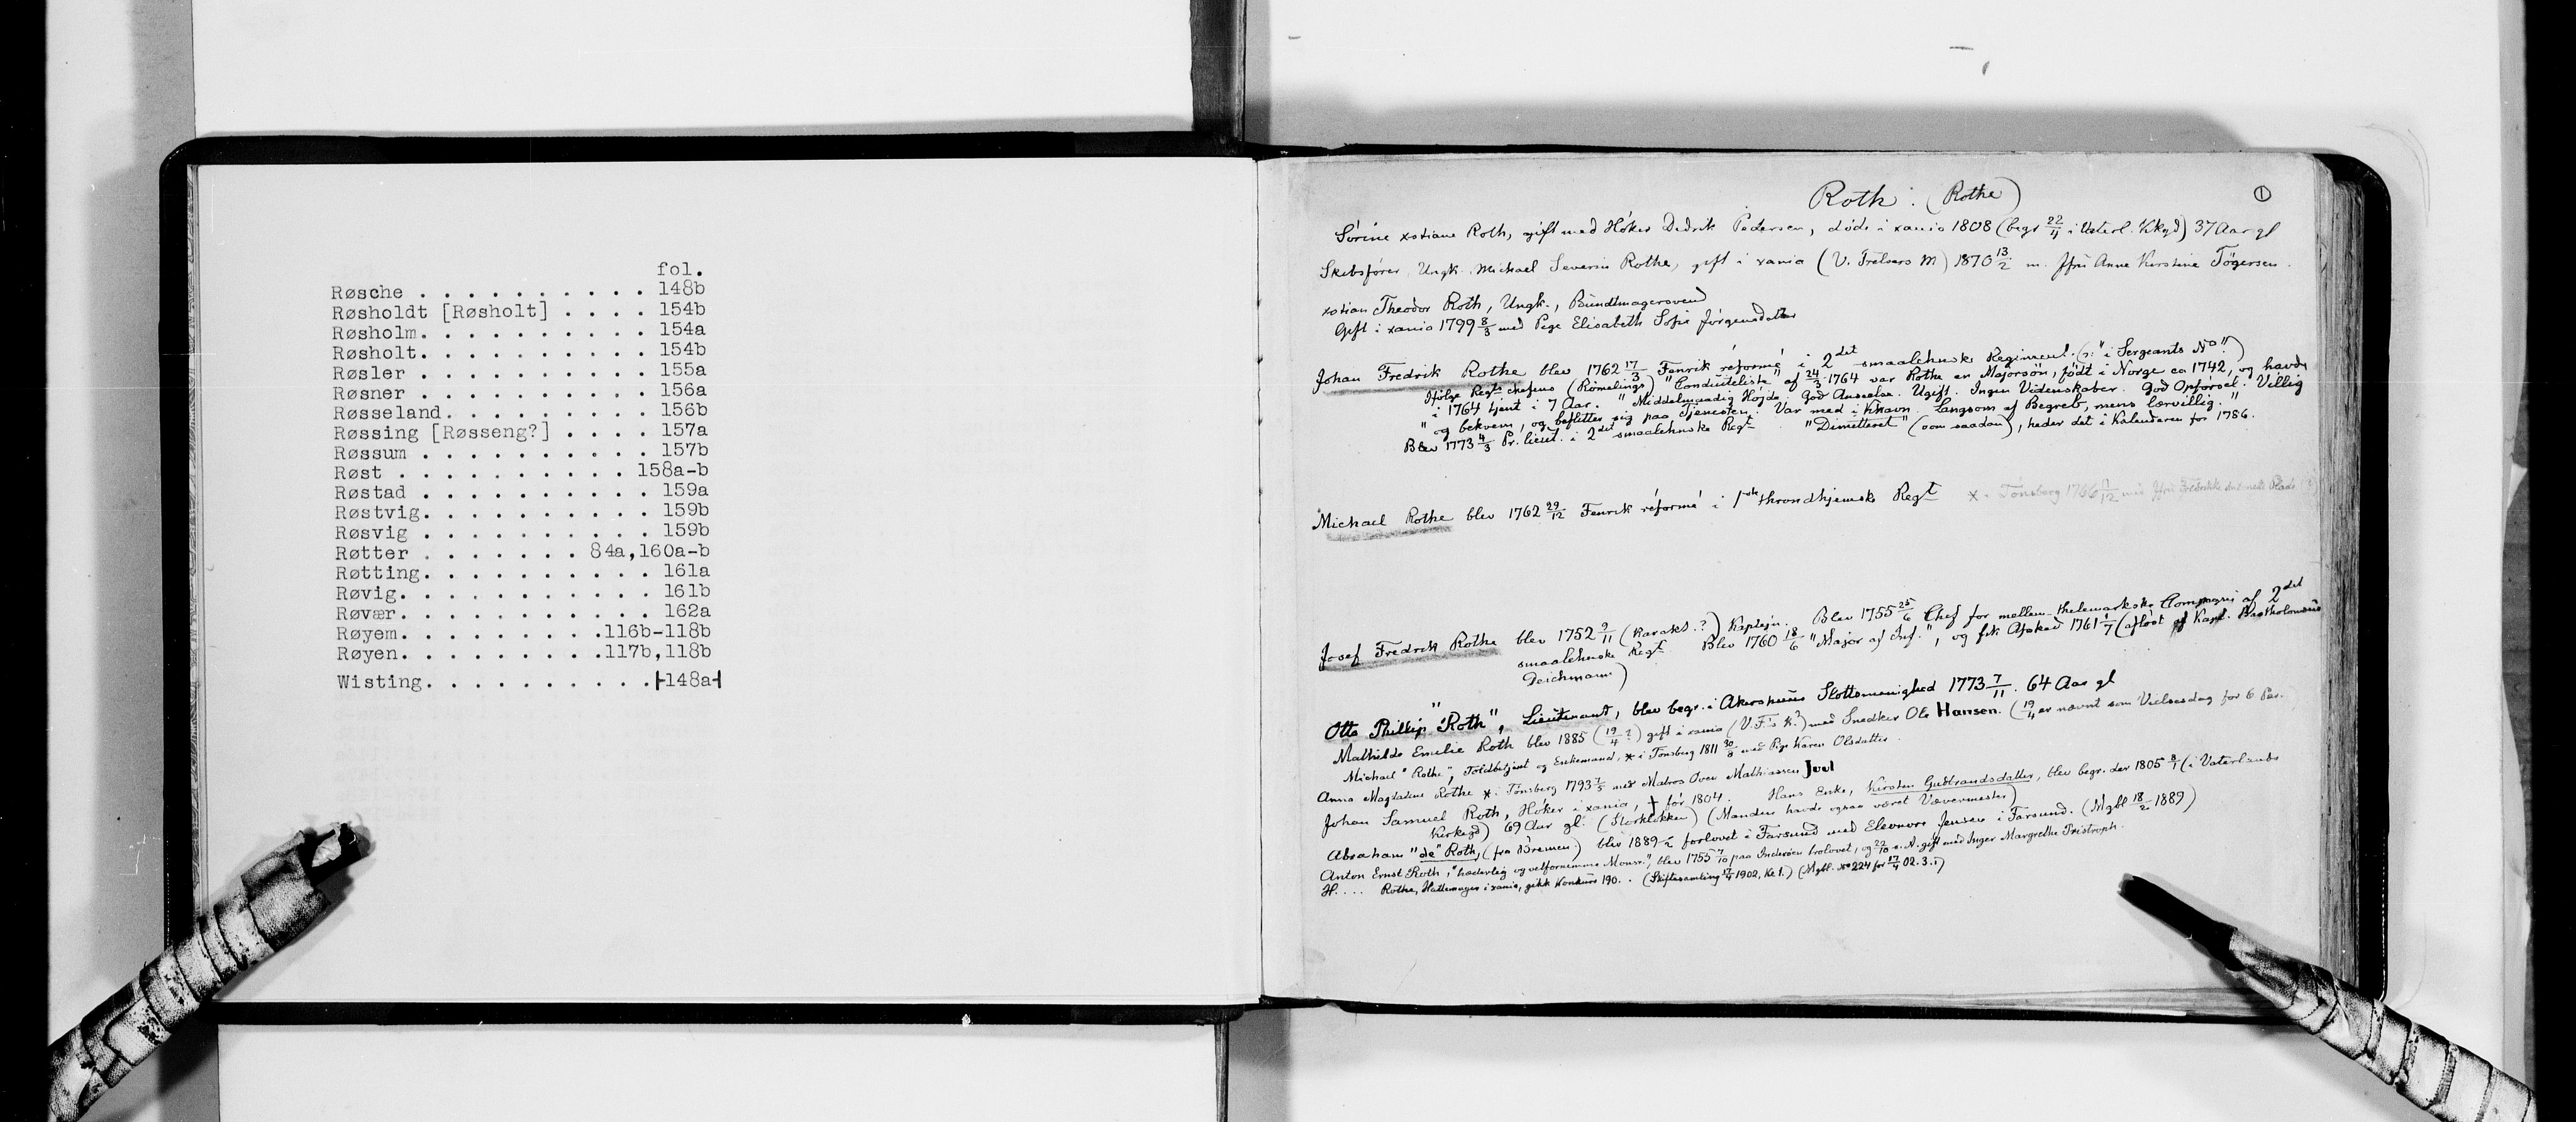 fol.
Røsche . . . . . . . . . . 148b
Røsholdt [Røsholt] . . . . 154b
Røsholm. . . . . . . . . . 154a
Røsholt. . . . . . . . . . 154b
Røsler . . . . . . . . . . 155a
Røsner . . . . . . . . . . 156a
Røsseland. . . . . . . . . 156b
Røssing [Røsseng?] . . . . 157a
Røssum . . . . . . . . . . 157b
Røst . . . . . . . . . . 158a-b
Røstad . . . . . . . . . . 159a
Røstvig. . . . . . . . . . 159b
Røsvig . . . . . . . . . . 159b
Røtter . . . . . . . 84a,160a-b
Røtting. . . . . . . . . . 161a
Røvig. . . . . . . . . . . 161b
Røvær. . . . . . . . . . . 162a
Røyem. . . . . . . . .116b-118b
Røyen. . . . . . . . .117b,118b
Wisting. . . . . . . . . .|-148a-|
Roth. (Rothe)
1
Sörine xstiane Roth, gift med Höker Didrik Pedersen, döde i xania 1808 (begr 22/11 i Vaterl. Kkgd) 37 Aar gl
Skibsförer, Ungk. Michael Severin Rothe, gift i xania (V. Frelsers M) 1870 13/2 m. Jfru Anne Kirstine Tögersen.
xstian Theodor Roth, Ungk., Bundtmagersvend
Gift i xania 1799 8/3 med Pige Elisabeth Sofie Jörgensdatter
Johan Fredrik Rothe blev 1762 17/3 Fenrik réformé i 2det smaalehnske Regiment. (ɔ: "i Sergeants No")
Ifölge Regts chefens (Römelings) "Conduiteliste" af 24/3 1764 var Rothe en Majorsön, födt i Norge ca 1742, og havde
i 1764 tjent i 7 Aar. "Middelmaadig Höjde. God Anseelse. Ugift. Ingen Videnskaber. God Opförsel. Villig
" og bekvem, og beflitter sig paa Tjenesten. Var med i Khavn. Langsom af Begreb, mens lærvillig."
Blev 1773 4/3 Pr. lieut. i 2det smaalehnske Regt. "Dimitteret" (som saadan), heder det i Kalenderen for 1786.
Michael Rothe blev 1762 29/12 Fenrik réformé i 1ste throndhjemske Regt x i Tönsberg 1766 17/12 med Jfru
Josef Fredrik Rothe blev 1752 9/11 (karakt.?) Kaptejn. Blev 1755 25/6 Chef for mellem-thelemarkske Compagni af 2det
smaalehnske Regt. Blev 1760 18/6 "Major af Inf.", og fik Afsked 1761 1/7 (aflöst af Kapt. Bartholomæus
Deichmann)
Otto Phillip "Roth", Lieutenant, blev begr. i Akershuus Slottsmenighed 1773 7/11. 64 Aar gl
Mathilde Emelie Roth blev 1885 (19/4 ?) gift i xania (V.F's K?) med Snedker Ole Hansen. (19/4 er nævnt som Vielsesdag for 6 Par.
Michael "Rothe", Toldbetjent og Enkemand, x i Tönsberg 1811 30/8 med Pige Karen Olsdatter.
Anna Magdalene Rothe x i Tönsberg 1793 7/5 med Matros Över Mathiassen Juul
Johan Samuel Roth, Höker i xania, † för 1804. Hans Enke, Kirsten Gudbrandsdatter, blev begr. der 1805 8/1 (i Vaterlands
Kirkegd) 69 Aar gl. (Storklokken) (Manden havde ogsaa været Vævermester)
Abraham "de" Roth, (fra Bremen) blev 1889 /2 forlovet i Farsund med Elevnore Jensen i Farsund. (Mgbl 18/2 1889)
Anton Ernst Roth, "hæderlig og velfornemme Monsr.", blev 1755 7/10 paa Inderöen trolovet, og 22/10 s. A. gift med Inger Margrethe Pristroph.
H.... Rothe, Hattemager i xania, gikk Konkurs 190 . (Skiftesamling 17/4 1902, Kl 1.) (Mgbl. No 224 for 17/4 02. 3. I)